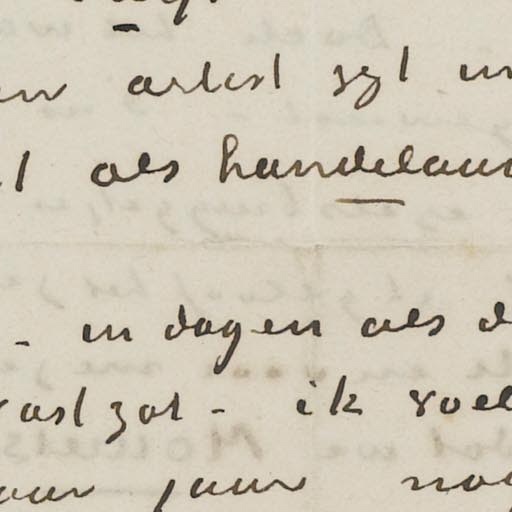 en artist zyt in
t als handelaar
- in dagen als d
vast zat - ik voel
paar jaar nog